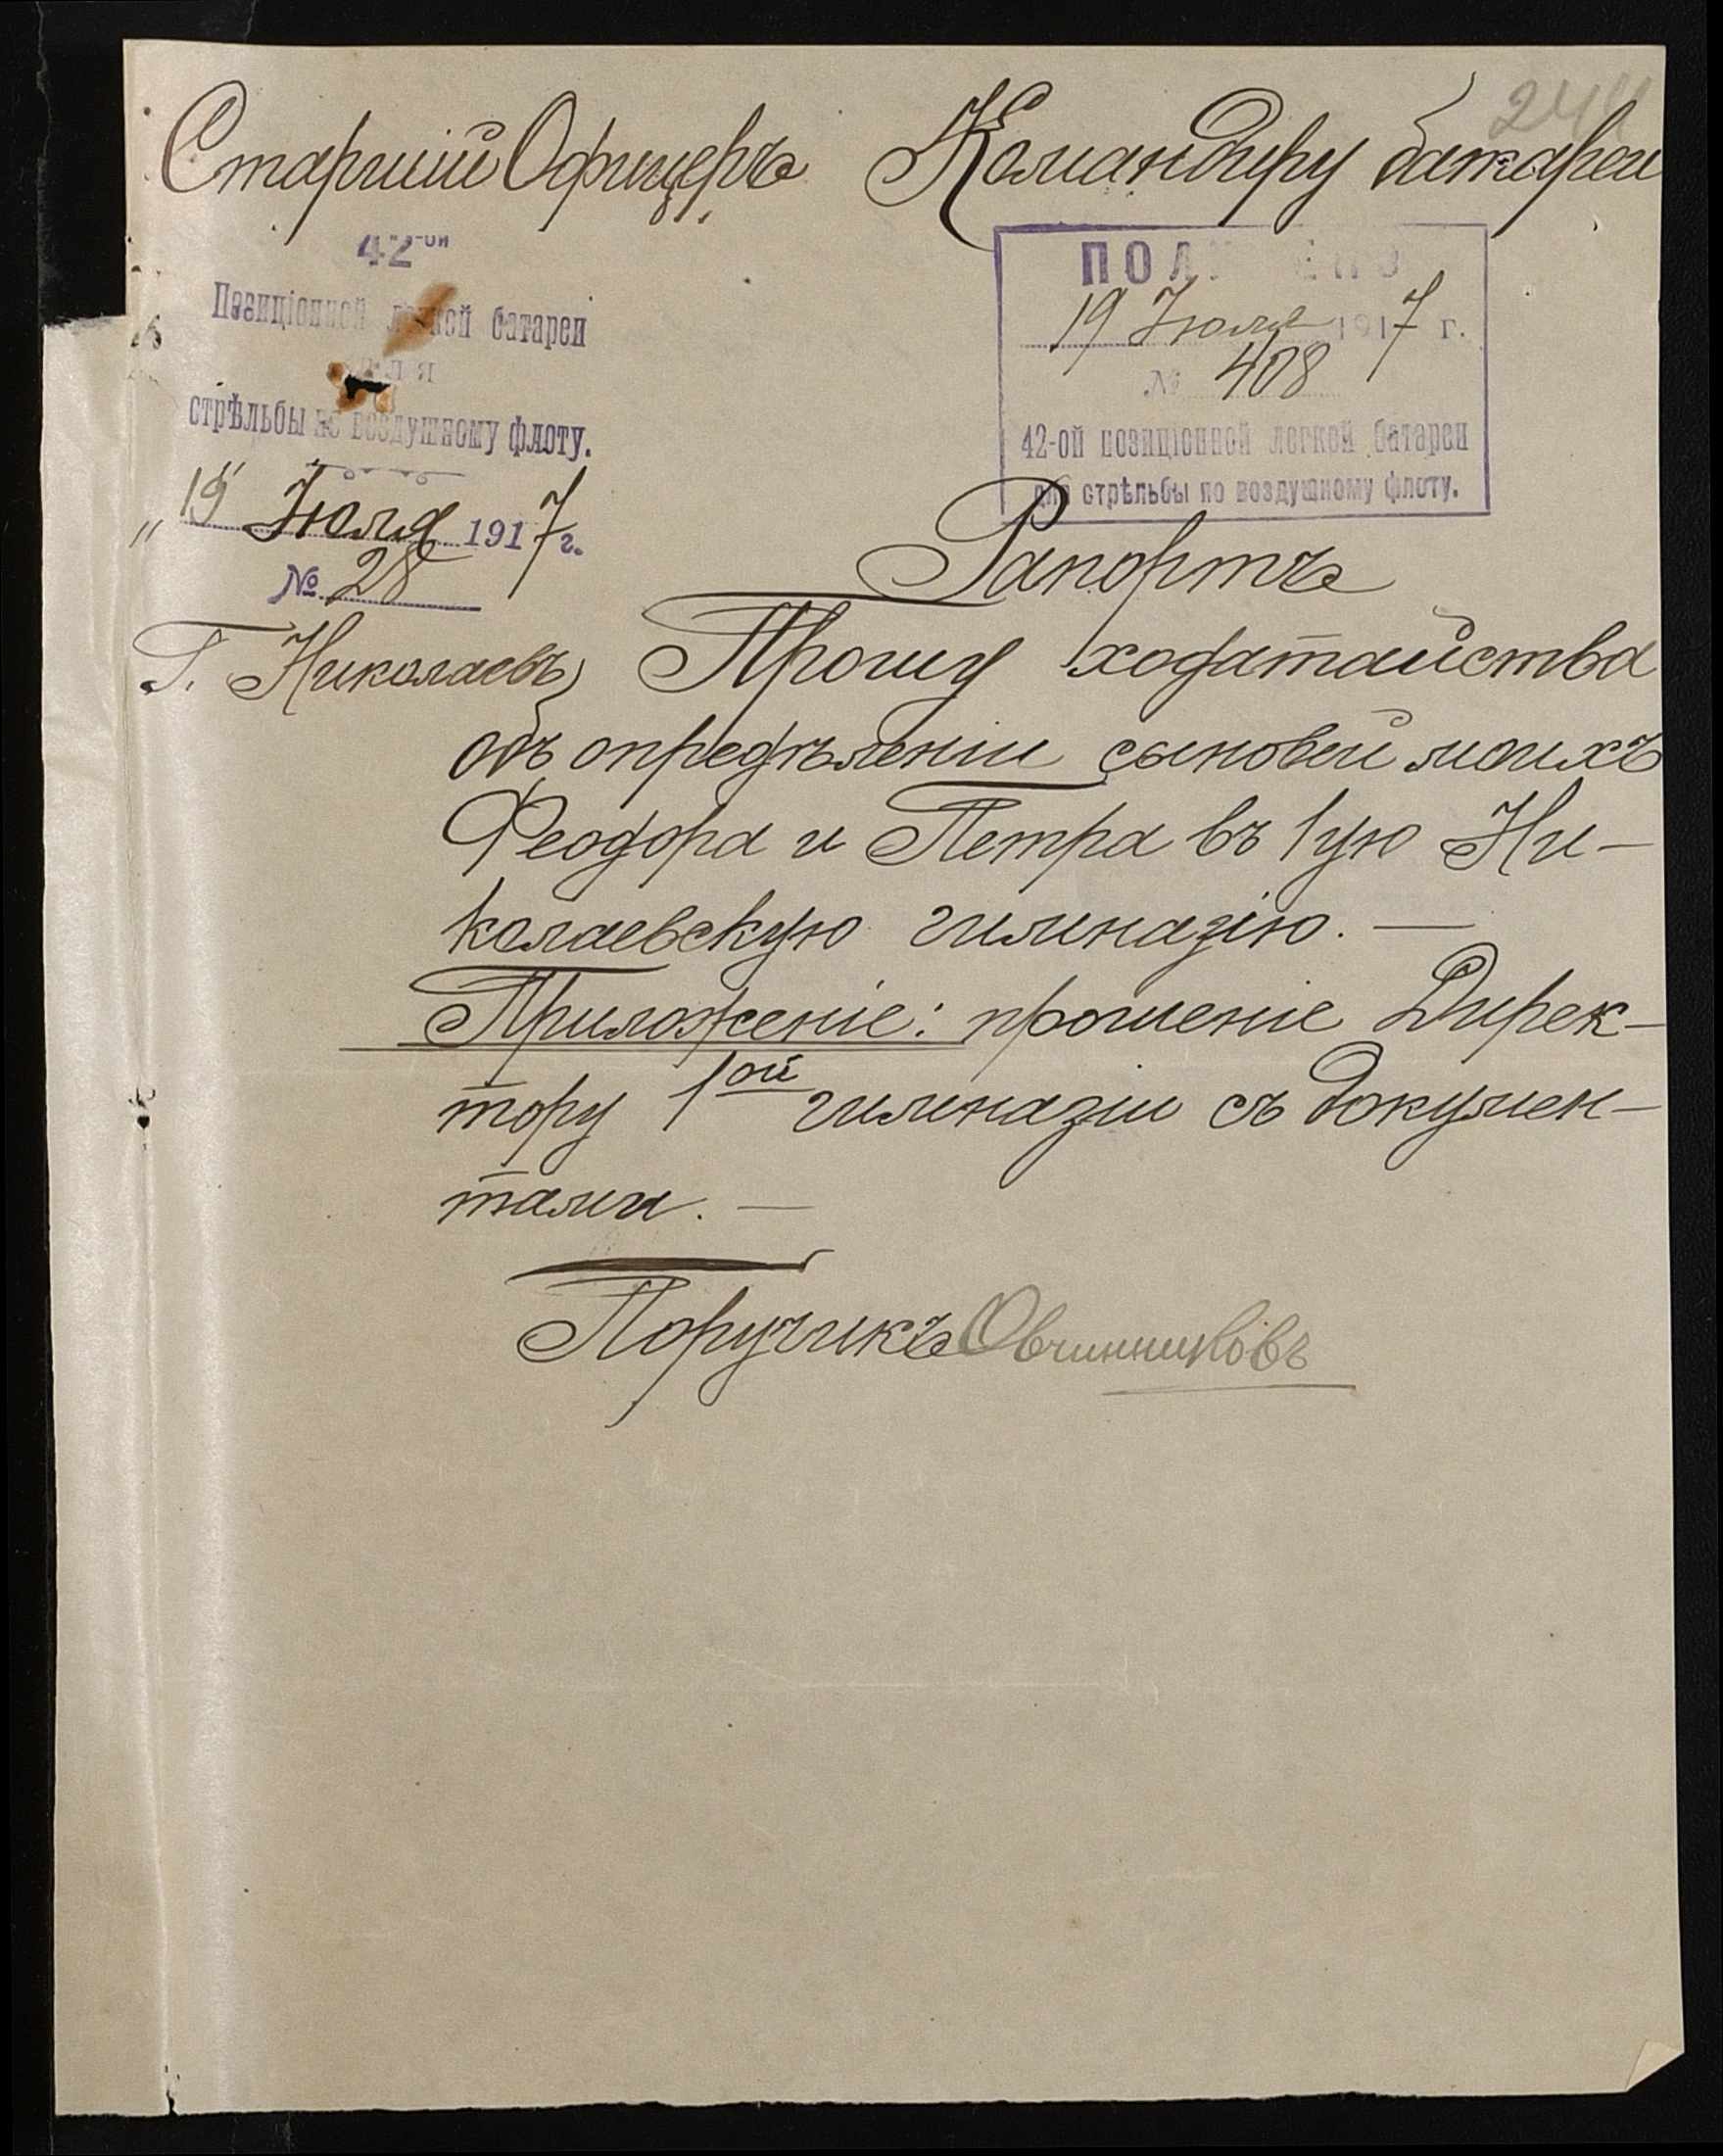 Старшій Офицеръ
42-ой
Позиціонной легкой батареи
для
стрѣльбы по воздушному флоту.
„19" Іюля 1917 г.
№ 28
Г. Николаевъ
Командиру батареи
ПОЛУЧЕНО
19 Іюля 1917 г.
№ 408
42-ой позиціонной легкой батареи
для стрѣльбы по воздушному флоту.
Рапортъ
Прошу ходатайства
объ опредѣленіи сыновей моихъ
Феодора и Петра въ 1ую Ни-
колаевскую гимназію. —
Приложеніе: прошеніе Дирек-
тору 1ой гимназіи съ докумен-
тами. —
Поручикъ Овчинниковъ